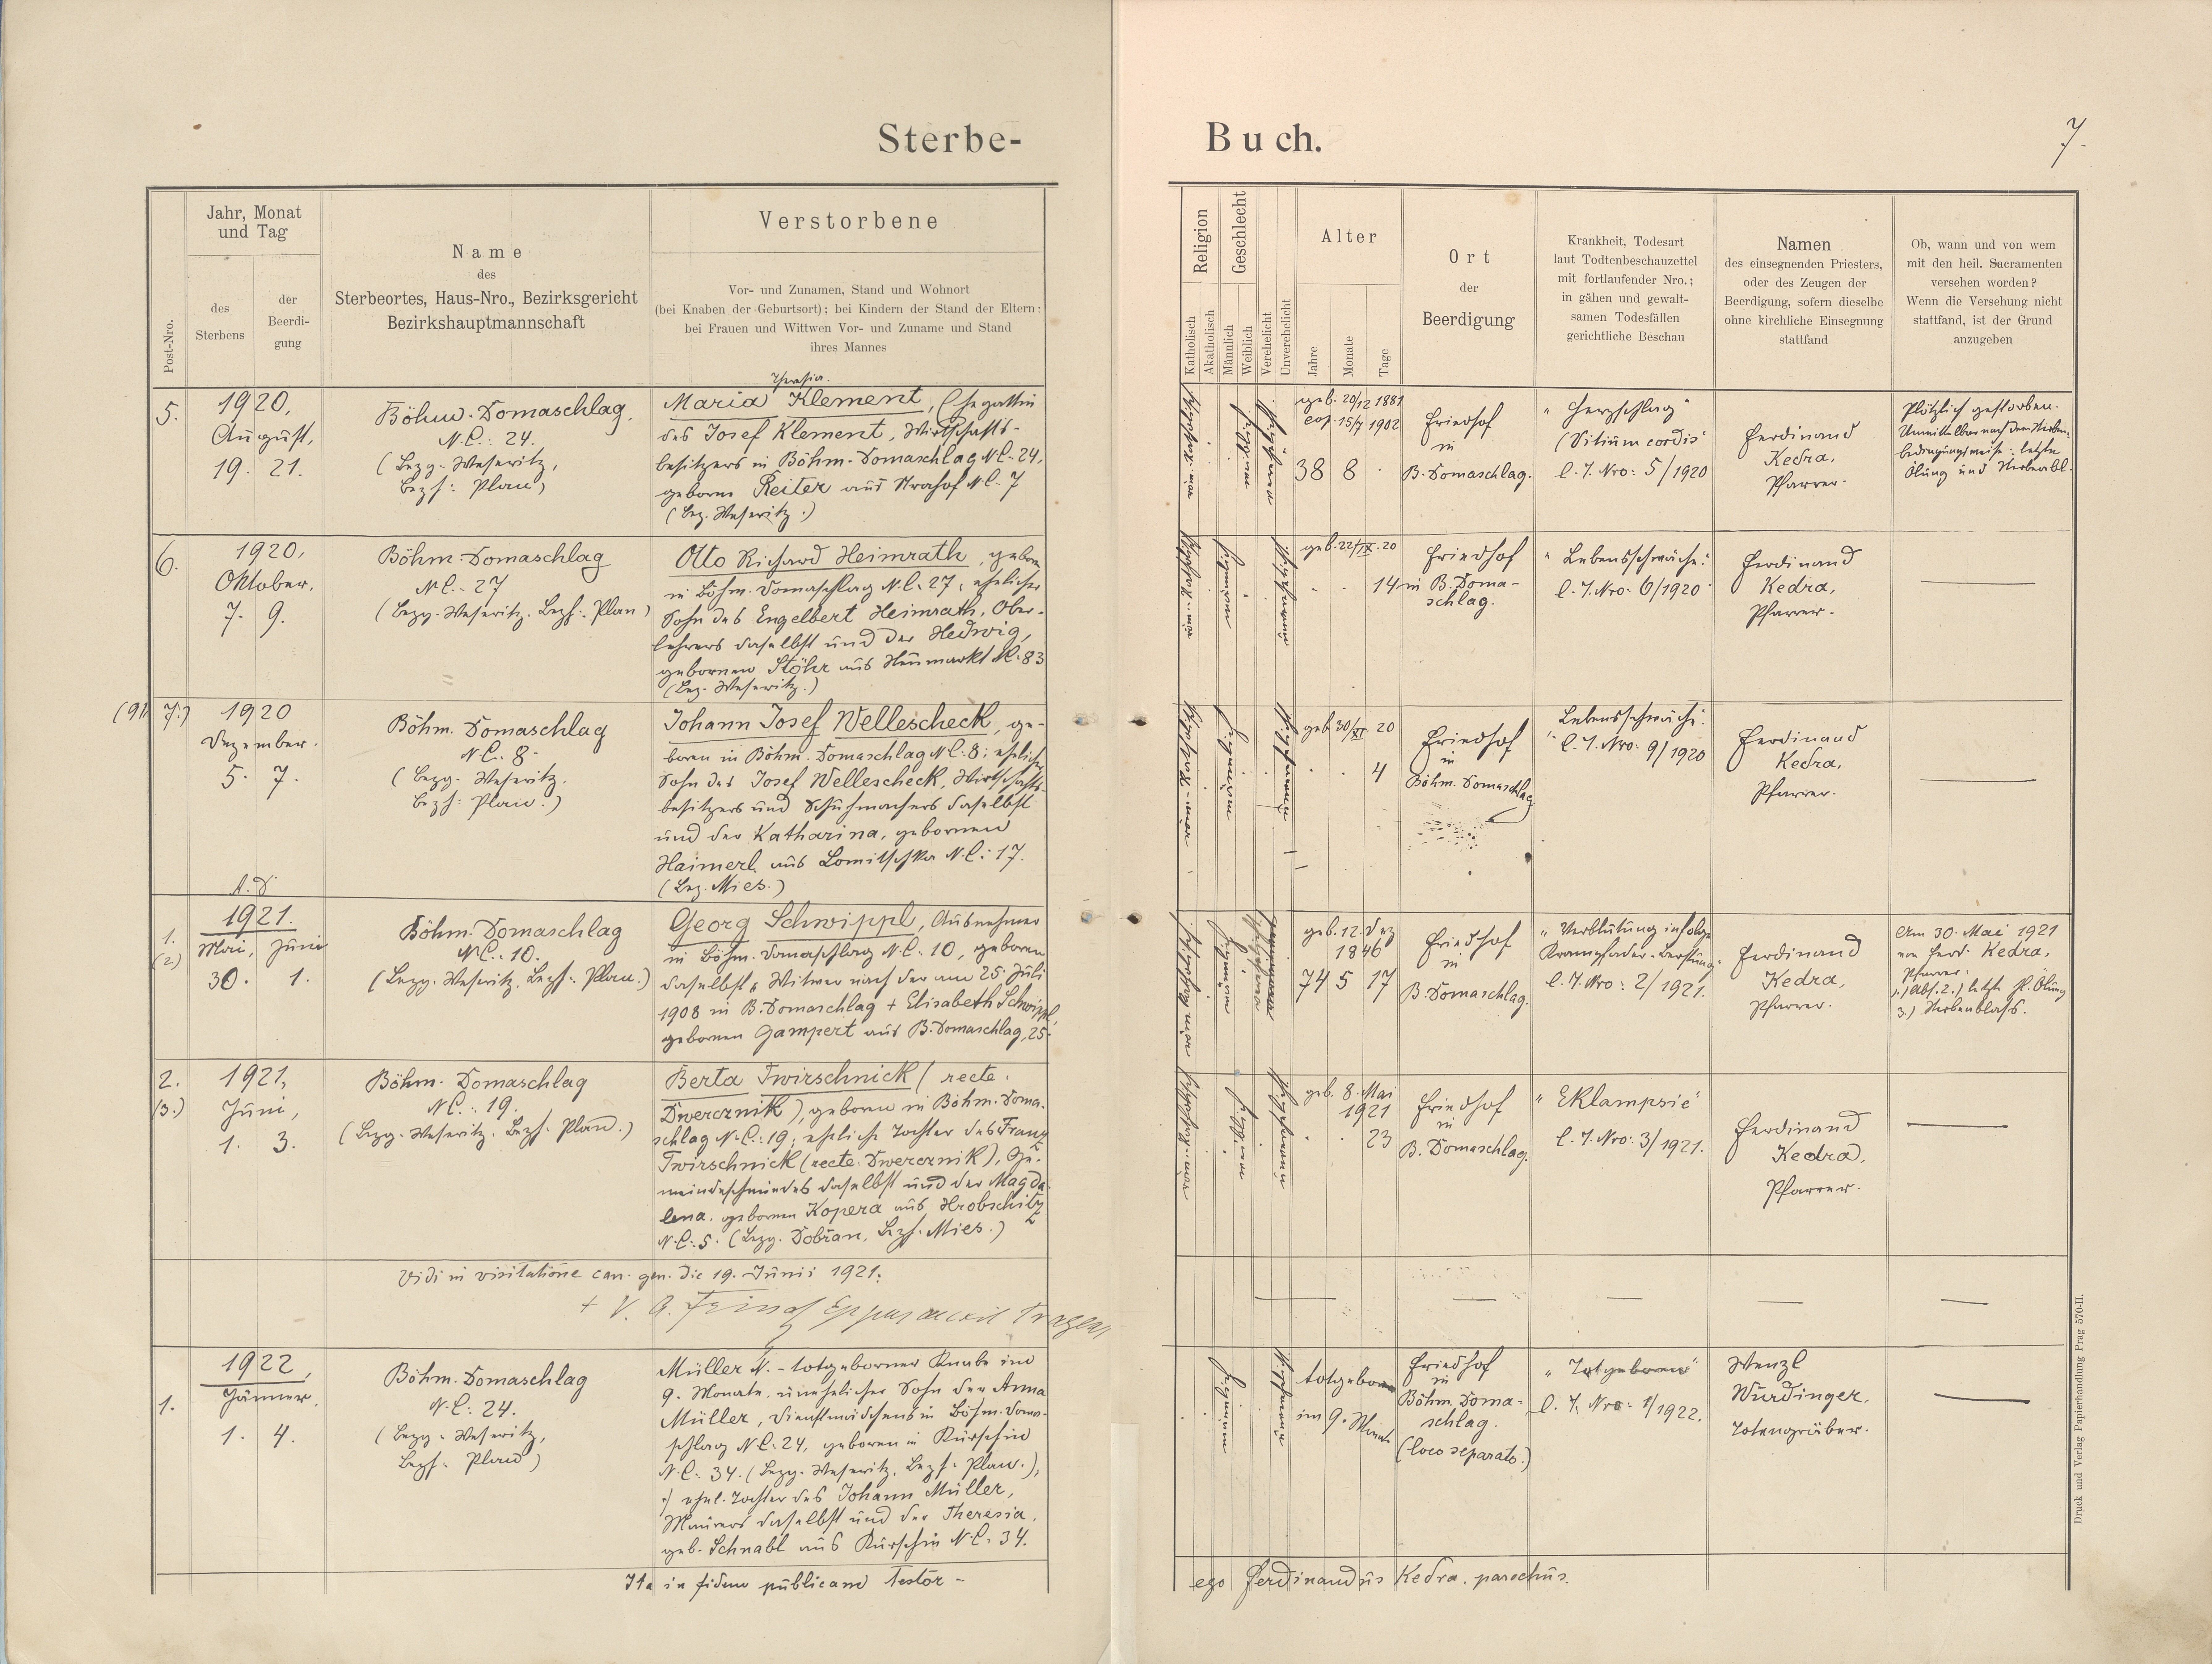 Sterbe-
Buch.
7.
Post-Nro.
Jahr, Monat
und Tag
des
Sterbens
der
Beerdi-
gung
Name
des
Sterbeortes, Haus-Nro., Bezirksgericht
Bezirkshauptmannschaft
Verstorbene
Vor- und Zunamen, Stand und Wohnort
(bei Knaben der Geburtsort); bei Kindern der Stand der Eltern:
bei Frauen und Wittwen Vor- und Zuname und Stand
ihres Mannes
Religion
Katholisch
Akatholisch
Geschlecht
Männlich
Weiblich
Verehelicht
Unverehelicht
Alter
Jahre
Monate
Tage
Ort
der
Beerdigung
Krankheit, Todesart
laut Todtenbeschauzettel
mit fortlaufender Nro.;
in gähen und gewalt-
samen Todesfällen
gerichtliche Beschau
Namen
des einsegnenden Priesters,
oder des Zeugen der
Beerdigung, sofern dieselbe
ohne kirchliche Einsegnung
stattfand
Ob, wann und von wem
mit den heil. Sacramenten
versehen worden?
Wenn die Versehung nicht
stattfand, ist der Grund
anzugeben
5.
1920,
August,
19. 21.
Böhm. Domaschlag.
N.C.: 24.
(Bezg. Weseritz,
Bezh: Plan)
Theresia.
Maria Klement, Ehegattin
des Josef Klement, Wirtschafts-
besitzers in Böhm. Domaschlag N.C. 24,
geborne Reiter aus Strahof N.C. 7
(Bez. Weseritz.)
geb. 20/12 1881
cop. 15/7 1902
38 8 .
Friedhof
in
B. Domaschlag.
"Herzschlag"
(Vitium cordis
l. T. Nro: 5/1920
Ferdinand
Kedra,
Pfarrer.
Plötzlich gestorben.
Unmittelbar nach dem Sterben
bedingungsweise: letzte
Ölung und Sterbeabl.
6.
1920,
Oktober,
7. 9.
Böhm. Domaschlag
N.C.- 27
(Bezg. Weseritz. Bezh: Plan)
Otto Richard Heimrath, geboren
in Böhm. Domaschlag N.C. 27, ehelicher
Sohn des Engelbert Heimrath, Ober-
lehrers daselbst und der Hedwig,
gebornen Stöhr aus Neumarkt N.C. 83
(Bez. Weseritz.)
geb. 22/IX. 20
. . 14
Friedhof
in B. Doma-
schlag.
"Lebensschwäche."
l. T. Nro. 6/1920
Ferdinand
Kedra,
Pfarrer.
7.)
1920
Dezember.
5. 7.
Böhm. Domaschlag
N.C. 8
(Bezg. Weseritz,
Bezh: Plan.)
Johann Josef Wellescheck, ge-
boren in Böhm. Domaschlag N.C. 8; ehelicher
Sohn des Josef Wellescheck, Wirtschafts-
besitzers und Schuhmachers daselbst
und der Katharina, gebornen
Haimerl aus Lomitschka N.C. 17.
(Bez. Mies.)
geb 30/XI 20
. . 4
Friedhof
in
Böhm. Domaschlag
"Lebensschwäche."
l. T. Nro: 9/1920
Ferdinand
Kedra,
Pfarrer.
A.D.
1921.
1.
(2.)
Mai, Juni
30. 1.
Böhm. Domaschlag
N.C.: 10.
(Bezg. Weseritz. Bezh: Plan.)
Georg Schwippl, Ausnehmer
in Böhm. Domaschlag N.C. 10, geboren
daselbst, Witwer nach der am 25. Juli
1908 in B. Domaschlag + Elisabeth Schwippl,
gebornen Gampert aus B. Domaschlag, 25.
geb. 12. Dez
1846
74 5 17
Friedhof
in
B. Domaschlag.
"Verblutung infolge
Krampfader-Berstung.
l. T. Nro: 2/1921.
Ferdinand
Kedra,
Pfarrer.
Am 30. Mai 1921
von Ferd. Kedra,
Pfarrer.
1.) Abs. 2.) letzte hl. Ölung
3.) Sterbeablass.
2.
(3.)
1921,
Juni,
1. 3.
Böhm. Domaschlag
N.C.: 19.
(Bezg. Weseritz. Bezh. Plan.)
Berta Twirschnick (recte
Dwercznik), geboren in Böhm. Doma-
schlag N.C.: 19; eheliche Tochter des Franz
Twirschnick (recte Dwercznik), Ge-
meindeschmiedes daselbst und der Magda-
lena, gebornen Kopera aus Hrobschitz
N.C.: 5. (Bezg. Dobřan, Bezh. Mies.)
geb. 8. Mai
1921
. . 23
Friedhof
in
B. Domaschlag.
"Eklampsie"
l. T. Nro: 3/1921.
Ferdinand
Kedra,
Pfarrer.
Vidi in visitatione can. gen. die 19. Junii 1921.
1922,
1.
Jänner.
1. 4.
Böhm. Domaschlag
N.C.: 24.
(Bezg. Weseritz,
Bezh. Plan)
Müller N. - totgeborner Knabe im
9. Monate, unehelicher Sohn der Anna
Müller, Dienstmädchens in Böhm. Doma-
schlag N.C. 24, geboren in Kurschin
N.C. 34. (Bezg. Weseritz. Bezh: Plan.),
ehel. Tochter des Johann Müller,
Maurers daselbst und der Theresia,
geb. Schnabl aus Kurschin N.C. 34.
totgeboren
im 9. Monate
Friedhof
in
Böhm. Doma-
schlag.
(loco separato.)
"Totgeboren"
l. T. Nro: 1/1922.
Wenzl
Wurdinger,
Totengräber.
Ita in fidem publicam testor -
ego Ferdinandus Kedra, parochus.
Druck und Verlag Papierhandlung Prag 570-II.